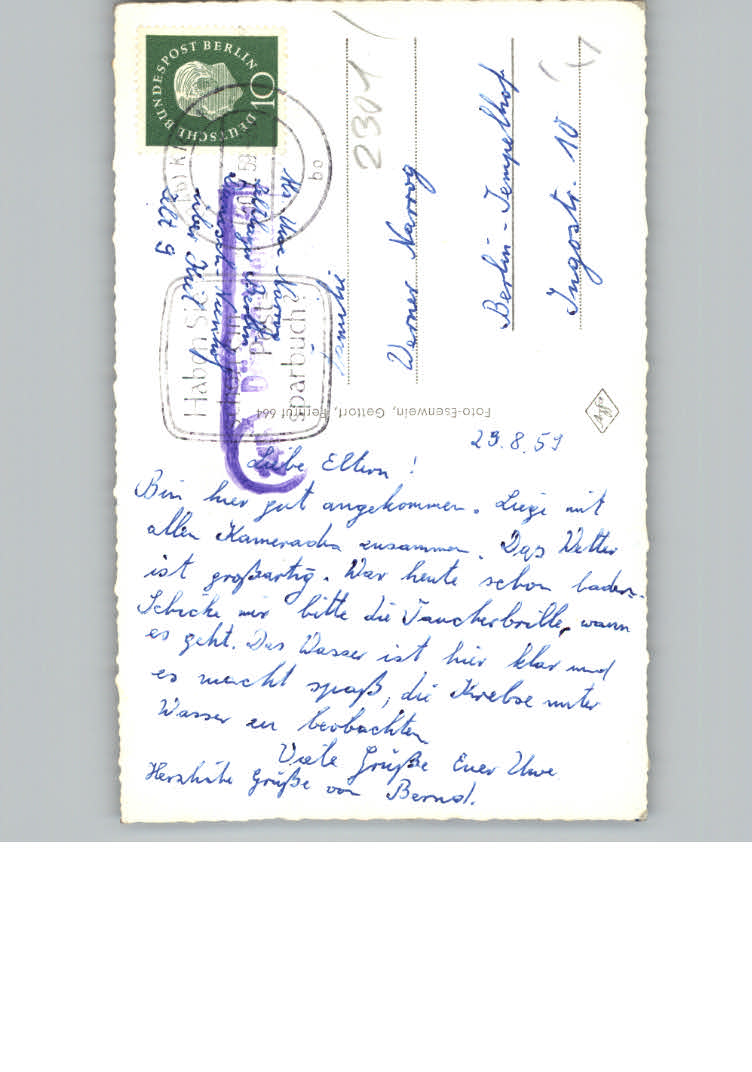 DEUTSCHE BUNDESPOST BERLIN
10
59
bo
Haben Sie
Post-
sparbuch?
Zelt 9
2301
Familie
Werner Nawog
Berlin-Tempelhof
Ingostr. 10
Foto-Esenwein, Gettorf, Fernruf 664
Agfa
23.8.59
Liebe Eltern!
Bin hier gut angekommen. Liege mit
allen Kameraden zusammen. Das Wetter
ist großartig. War heute schon baden.
Schicke mir bitte die Taucherbrille, wann
es geht. Das Wasser ist hier klar und
es macht spaß, die Krebse unter
Wasser zu beobachten
Viele Grüße Euer Uwe
Herzliche Grüße von Bernd.